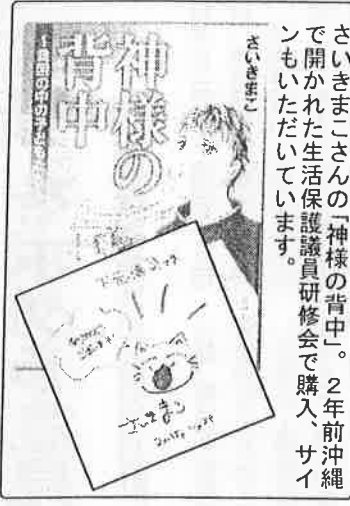 さいきまこさんの「神様の背中」。２年前沖縄
で開かれた生活保護議員研修会で購入、サイ
ンもいただいてい
ます。
さいきまこ
神様の
背中
さいきまこ